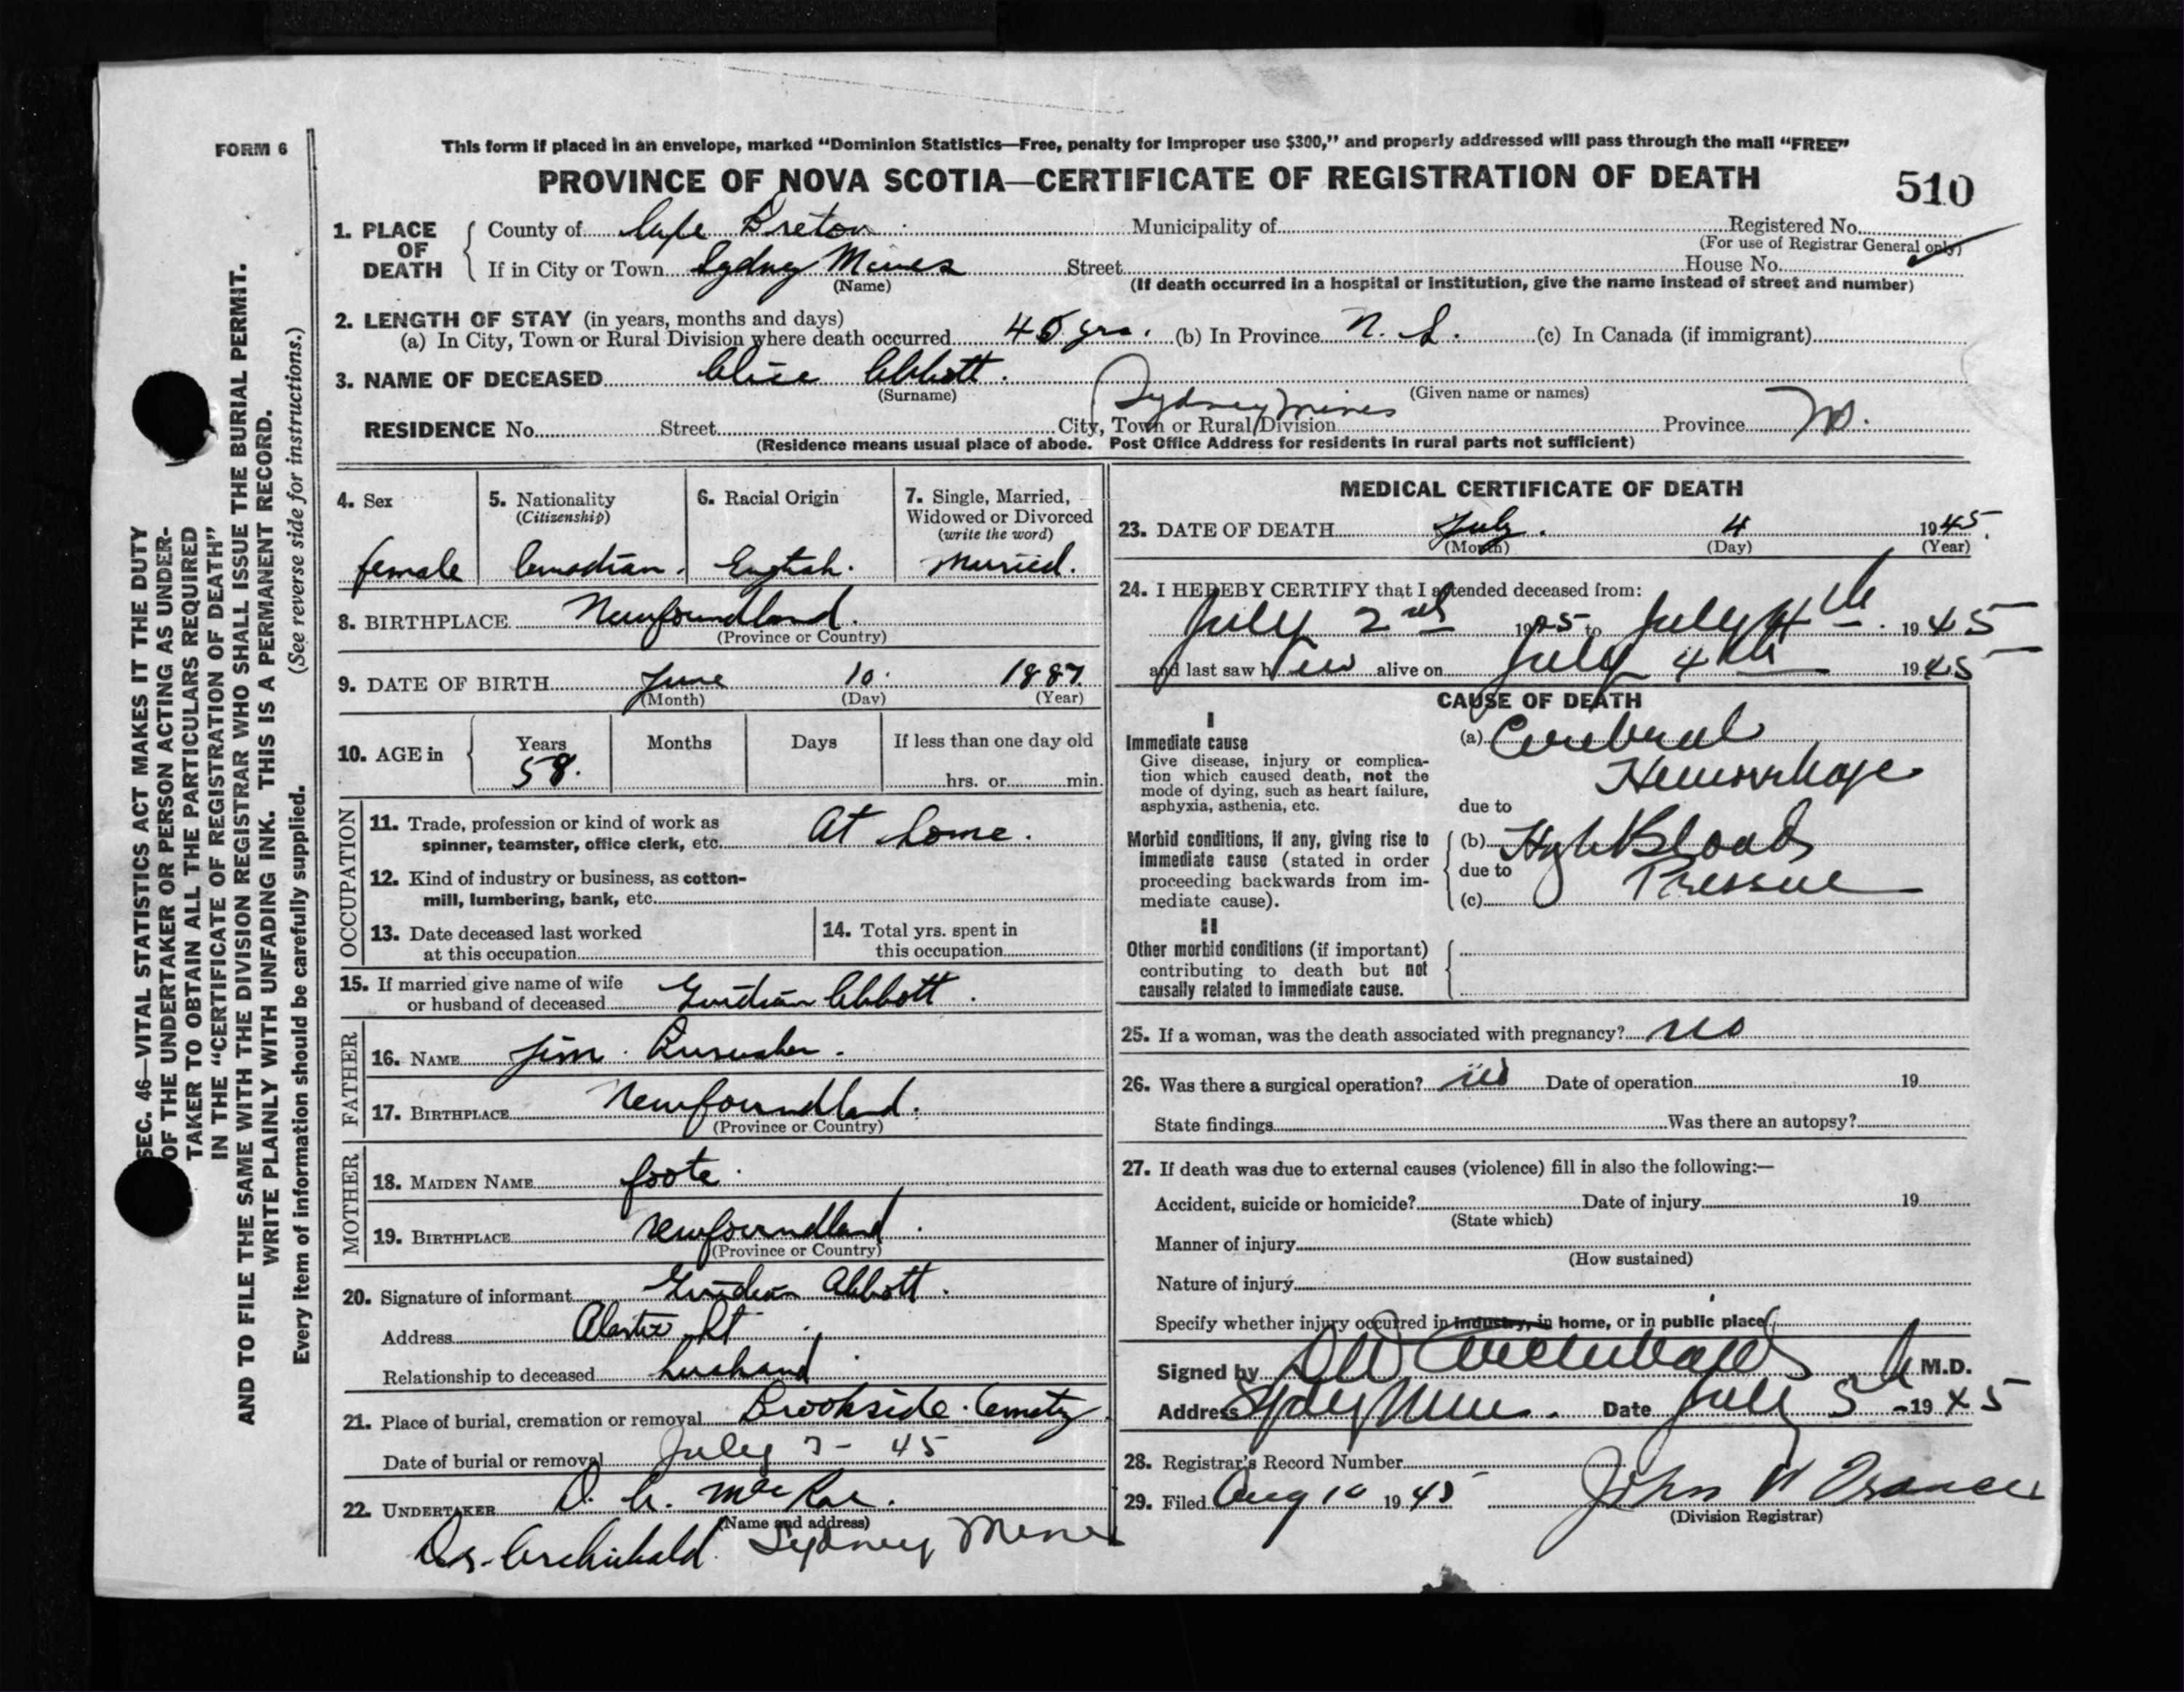 FORM 6
This form if placed in an envelope, marked “Dominion Statistics—Free, penalty for improper use $300,” and properly addressed will pass through the mail “FREE”
PROVINCE OF NOVA SCOTIA—CERTIFICATE OF REGISTRATION OF DEATH
510
1. PLACE OF DEATH
County of Cape Breton Municipality of Registered No.
(For use of Registrar General only)
If in City or Town Sydney Mines Street House No.
(Name) (If death occurred in a hospital or institution, give the name instead of street and number)
2. LENGTH OF STAY (in years, months and days)
(a) In City, Town or Rural Division where death occurred 45 yrs. (b) In Province N. S. (c) In Canada (if immigrant)
3. NAME OF DECEASED Alice Abbott.
(Surname) (Given name or names)
RESIDENCE No. Street City, Town or Rural Division Sydney Mines Province NS.
(Residence means usual place of abode. Post Office Address for residents in rural parts not sufficient)
4. Sex
female
5. Nationality
(Citizenship)
Canadian.
6. Racial Origin
English.
7. Single, Married,
Widowed or Divorced
(write the word)
Married.
8. BIRTHPLACE Newfoundland.
(Province or Country)
9. DATE OF BIRTH June 10. 1887
(Month) (Day) (Year)
10. AGE in Years Months Days If less than one day old
58. hrs. or min.
OCCUPATION
11. Trade, profession or kind of work as
spinner, teamster, office clerk, etc. At home.
12. Kind of industry or business, as cotton-
mill, lumbering, bank, etc.
13. Date deceased last worked
at this occupation
14. Total yrs. spent in
this occupation
15. If married give name of wife
or husband of deceased Abbott.
FATHER
16. NAME Jim
17. BIRTHPLACE Newfoundland.
(Province or Country)
MOTHER
18. MAIDEN NAME foote.
19. BIRTHPLACE newfoundland.
(Province or Country)
20. Signature of informant Abbott.
Address St
Relationship to deceased husband
21. Place of burial, cremation or removal Brookside.
Date of burial or removal July 7 - 45
22. UNDERTAKER
(Name and address)
Dr. Archibald. Sydney Mines
MEDICAL CERTIFICATE OF DEATH
23. DATE OF DEATH July. 4 1945.
(Month) (Day) (Year)
24. I HEREBY CERTIFY that I attended deceased from:
July 2nd 19 to July 4th. 1945
and last saw her alive on July 4th 1945
CAUSE OF DEATH
I
Immediate cause
Give disease, injury or complica-
tion which caused death, not the
mode of dying, such as heart failure,
asphyxia, asthenia, etc.
(a) Cerebral
Hemorrhage
due to
Morbid conditions, if any, giving rise to
immediate cause (stated in order
proceeding backwards from im-
mediate cause).
(b) High Blood
due to Pressure
(c)
II
Other morbid conditions (if important)
contributing to death but not
causally related to immediate cause.
25. If a woman, was the death associated with pregnancy? no
26. Was there a surgical operation? no Date of operation 19
State findings Was there an autopsy?
27. If death was due to external causes (violence) fill in also the following:—
Accident, suicide or homicide? Date of injury 19
(State which)
Manner of injury
(How sustained)
Nature of injury
Specify whether injury occurred in industry, in home, or in public place
Signed by Archibald M.D.
Address Sydney Mines. Date July 5th 1945
28. Registrar's Record Number
29. Filed Aug 10 1945 John
(Division Registrar)
SEC. 46—VITAL STATISTICS ACT MAKES IT THE DUTY
OF THE UNDERTAKER OR PERSON ACTING AS UNDER-
TAKER TO OBTAIN ALL THE PARTICULARS REQUIRED
IN THE “CERTIFICATE OF REGISTRATION OF DEATH”
AND TO FILE THE SAME WITH THE DIVISION REGISTRAR WHO SHALL ISSUE THE BURIAL PERMIT.
WRITE PLAINLY WITH UNFADING INK. THIS IS A PERMANENT RECORD.
Every item of information should be carefully supplied. (See reverse side for instructions.)